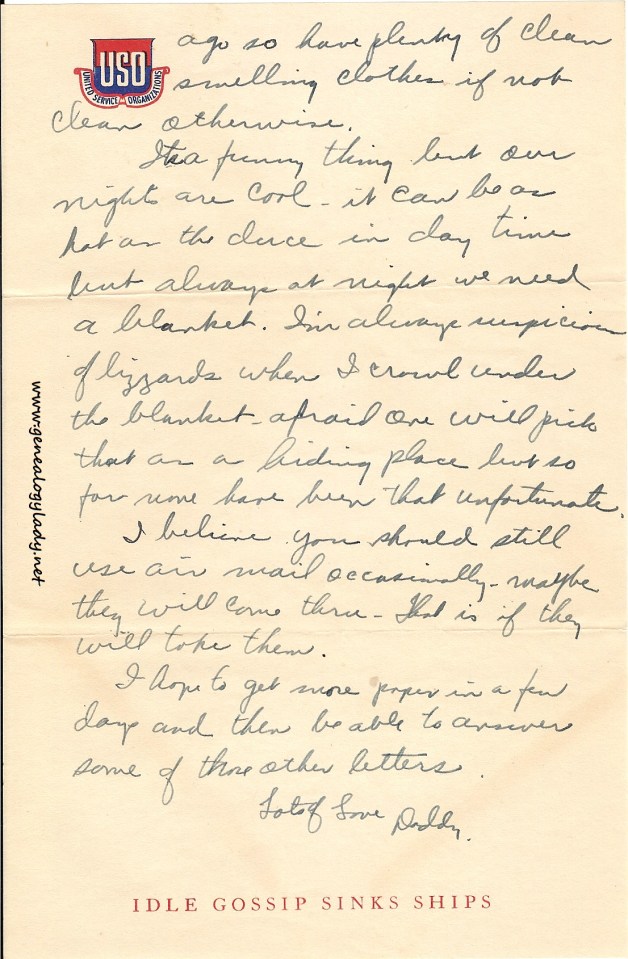 USO
UNITED SERVICE ORGANIZATIONS
ago so have plenty of clean
smelling clothes if not
clean otherwise.
Its a funny thing but our
nights are cool - it can be as
hot as the duce in day time
but always at night we need
a blanket. I'm always suspicious
of lizzards when I crowl under
the blanket - afraid one will pick
that as a hiding place but so
far none have been that unfortunate.
I believe you should still
use air mail occasionally - maybe
they will come thru - that is if they
will take them.
I hope to get more paper in a few
days and then be able to answer
some of those other letters.
Lots of Love Daddy.
IDLE GOSSIP SINKS SHIPS
www.genealogylady.net